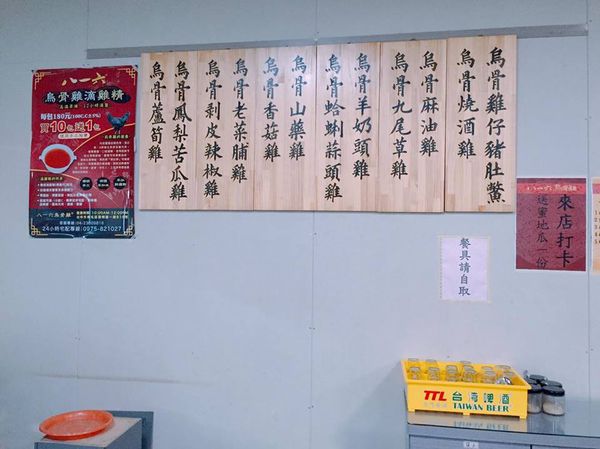 烏骨雞仔豬肚鱉
烏骨燒酒雞
烏骨麻油雞
烏骨九尾草雞
烏骨羊奶頭雞
烏骨蛤蜊蒜頭雞
烏骨山藥雞
烏骨香菇雞
烏骨老菜脯雞
烏骨剝皮辣椒雞
烏骨鳳梨苦瓜雞
烏骨蘆筍雞
八一六
烏骨雞滴雞精
每包180元
買10包送1包
八一六烏骨雞
24小時宅配專線:0975-821027
餐具請自取
八一六烏骨雞
來店打卡
送蜜地瓜一份
TTL 台灣啤酒
TAIWAN BEER